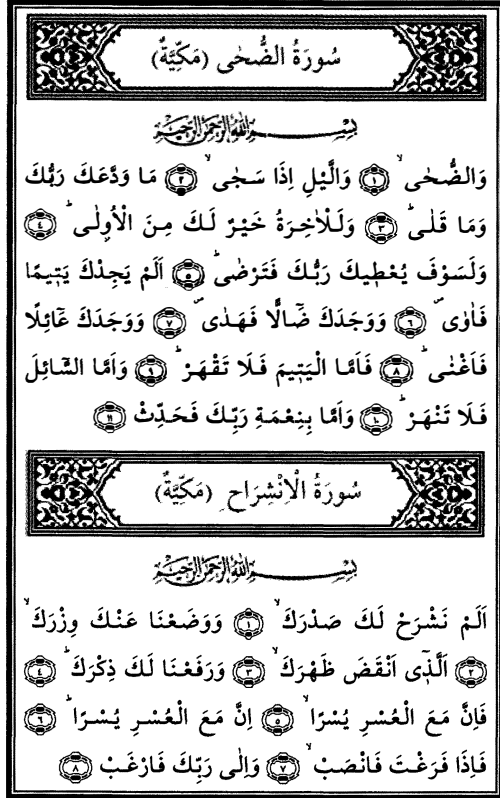 سُورَةُ الضُّحٰى (مَكِّيَّةٌ)
بِسْمِ اللّٰهِ الرَّحْمٰنِ الرَّحِيمِ
وَالضُّحٰىۙ ﴿١﴾ وَالَّيْلِ اِذَا سَجٰىۙ ﴿٢﴾ مَا وَدَّعَكَ رَبُّكَ
وَمَا قَلٰىۜ ﴿٣﴾ وَلَلْاٰخِرَةُ خَيْرٌ لَكَ مِنَ الْاُو۫لٰىۜ ﴿٤﴾
وَلَسَوْفَ يُعْط۪يكَ رَبُّكَ فَتَرْضٰىۜ ﴿٥﴾ اَلَمْ يَجِدْكَ يَت۪يمًا
فَاٰوٰىۖ ﴿٦﴾ وَوَجَدَكَ ضَٓالًّا فَهَدٰىۖ ﴿٧﴾ وَوَجَدَكَ عَٓائِلًا
فَاَغْنٰىۜ ﴿٨﴾ فَاَمَّا الْيَت۪يمَ فَلَا تَقْهَرْۜ ﴿٩﴾ وَاَمَّا السَّٓائِلَ
فَلَا تَنْهَرْۜ ﴿١٠﴾ وَاَمَّا بِنِعْمَةِ رَبِّكَ فَحَدِّثْ ﴿١١﴾
سُورَةُ الْاِنْشِرَاحِ (مَكِّيَّةٌ)
بِسْمِ اللّٰهِ الرَّحْمٰنِ الرَّحِيمِ
اَلَمْ نَشْرَحْ لَكَ صَدْرَكَۙ ﴿١﴾ وَوَضَعْنَا عَنْكَ وِزْرَكَۙ
﴿٢﴾ اَلَّذ۪ٓي اَنْقَضَ ظَهْرَكَۙ ﴿٣﴾ وَرَفَعْنَا لَكَ ذِكْرَكَۜ ﴿٤﴾
فَاِنَّ مَعَ الْعُسْرِ يُسْرًاۙ ﴿٥﴾ اِنَّ مَعَ الْعُسْرِ يُسْرًاۜ ﴿٦﴾
فَاِذَا فَرَغْتَ فَانْصَبْۙ ﴿٧﴾ وَاِلٰى رَبِّكَ فَارْغَبْ ﴿٨﴾